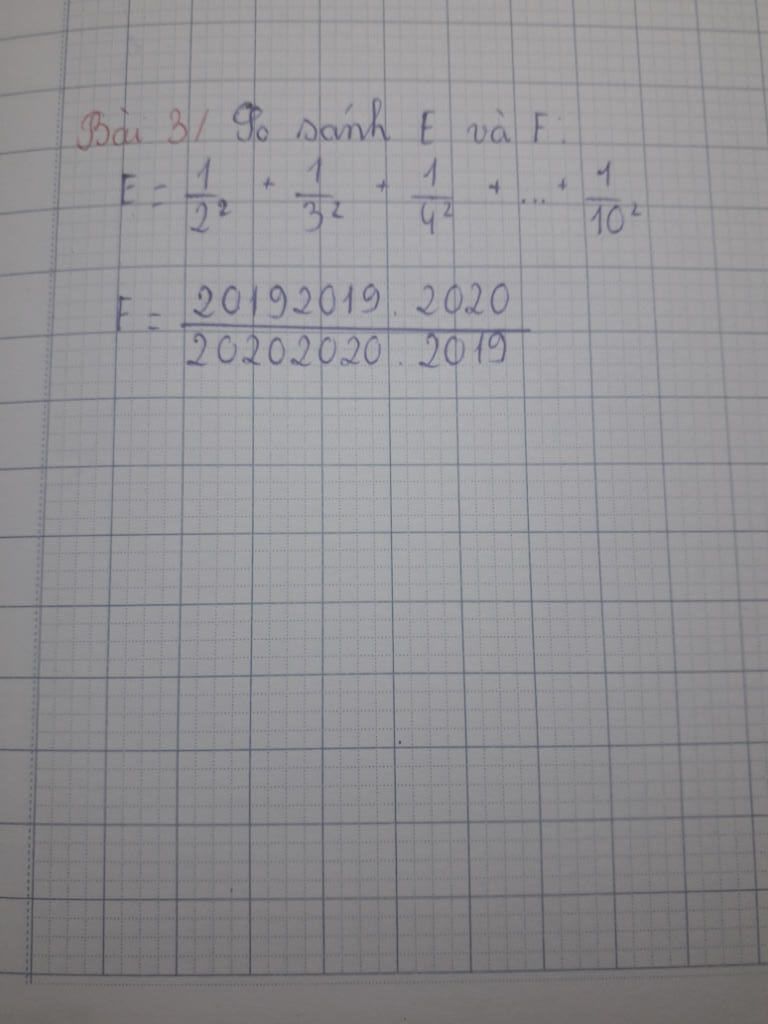 Bài 3/ So sánh E và F:
E = 1/2² + 1/3² + 1/4² + ... + 1/10²
F = 20192019 . 2020 / 20202020 . 2019